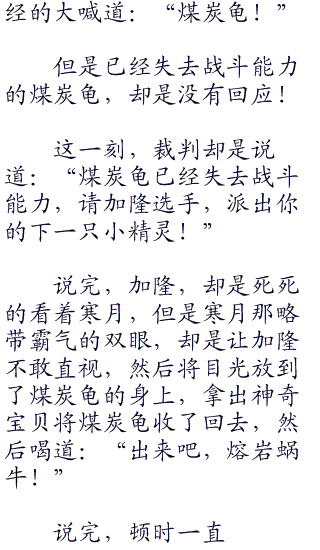 经的大喊道：“煤炭龟！”
但是已经失去战斗能力
的煤炭龟，却是没有回应！
这一刻，裁判却是说
道：“煤炭龟已经失去战斗
能力，请加隆选手，派出你
的下一只小精灵！”
说完，加隆，却是死死
的看着寒月，但是寒月那略
带霸气的双眼，却是让加隆
不敢直视，然后将目光放到
了煤炭龟的身上，拿出神奇
宝贝将煤炭龟收了回去，然
后喝道：“出来吧，熔岩蜗
牛！”
说完，顿时一直